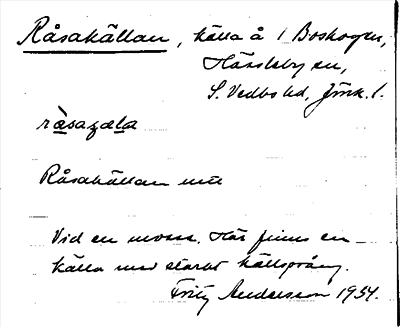 Råsakällan, källa å 1 Boskogen,
Hässleby sn,
S. Vedbo hd, Jönk. l.
ràsaçæla
Råsakällan
Vid en mosse. Här finns en
källa med starkt källsprång.
Fritz Andersson 1934.